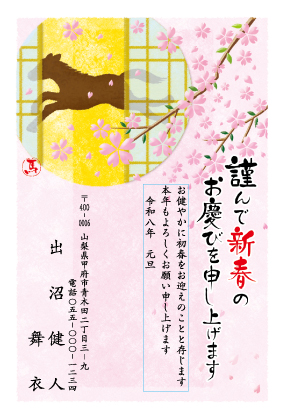 謹んで新春の
お慶びを申し上げます
お健やかに初春をお迎えのことと存じます
本年もよろしくお願い申し上げます
令和八年　元旦
〒400-0016
山梨県甲府市青木田二丁目三-九
電話〇五五-〇〇〇-一二三四
出沼　健人
舞衣